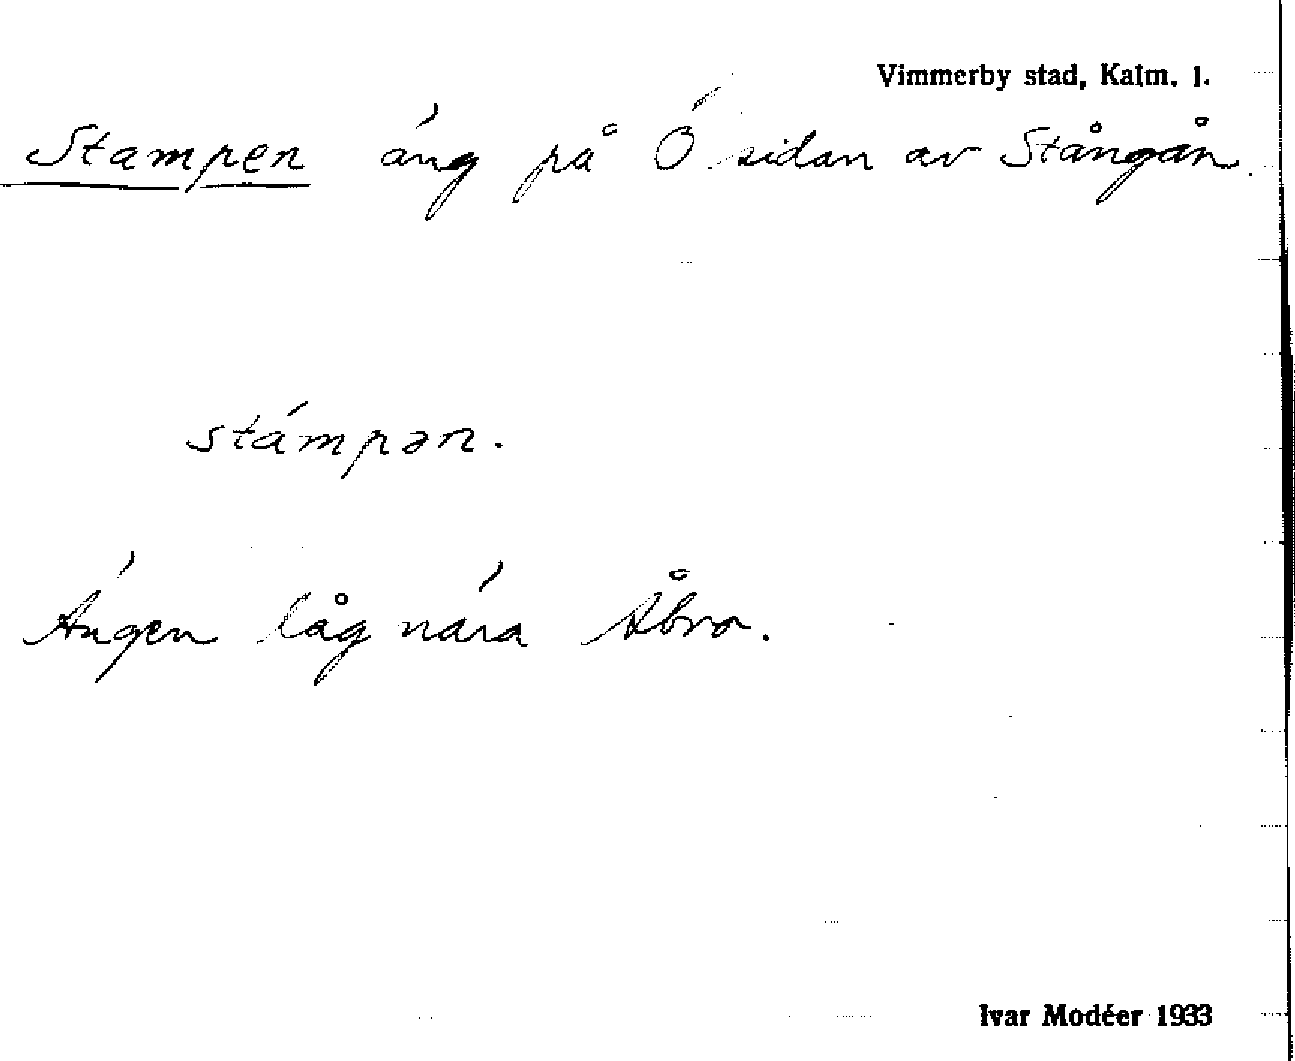 Vimmerby stad, Kalm. l.
Stampen äng på Ö sidan av Stångån.
stámpən.
Ängen låg nära Åbro.
Ivar Modéer 1933